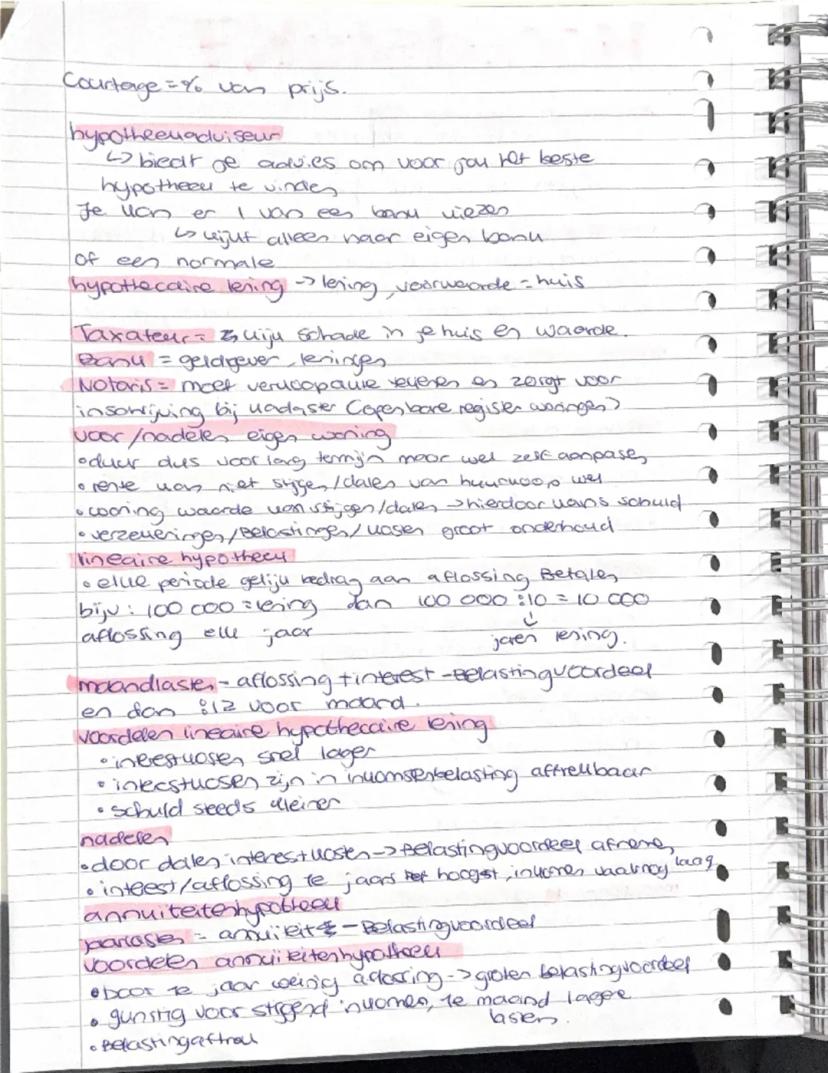 Courtage = % van prijs.
hypotheekadviseur
↳ biedt je advies om voor jou het beste
hypotheek te vinden
Je kan er 1 van een bank kiezen
↳ kijkt alleen naar eigen bank
of een normale
hypothecaire lening -> lening, voorwaarde = huis
Taxateur = kijk schade in je huis en waarde.
Bank = geldgever, leningen
Notaris = moet verkoopakte tekenen en zorgt voor
inschrijving bij kadaster (openbare register woningen)
voor/nadelen eigen woning
• duur dus voor lang termijn maar wel zelf aanpassen
• rente kan niet stijgen/dalen van huurkoop wel
• woning waarde kan stijgen/dalen -> hierdoor kans schuld
• verzekeringen/Belastingen/kosten groot onderhoud
lineaire hypotheek
• elke periode gelijk bedrag aan aflossing Betalen
bijv: 100 000 = lening dan 100 000 : 10 = 10 000
aflossing elk jaar ↓ jaren lening.
maandlasten - aflossing + interest - Belastingvoordeel
en dan : 12 voor maand.
voordelen lineaire hypothecaire lening
• interestkosten snel lager
• interestkosten zijn in inkomstenbelasting aftrekbaar
• schuld steeds kleiner
nadelen
• door dalen interestkosten -> Belastingvoordeel afneme
• interest/aflossing 1e jaars hoogst, inkomen vaak nog laag
annuiteitenhypotheek
jaarlasten = annuïteit - Belastingvoordeel
voordelen annuïteitenhypotheek
• Door 1e jaar weinig aflossing -> groten belastingvoordeel
• gunstig voor stijgend inkomen, 1e maand lagere
lasten.
• Belastingaftrek